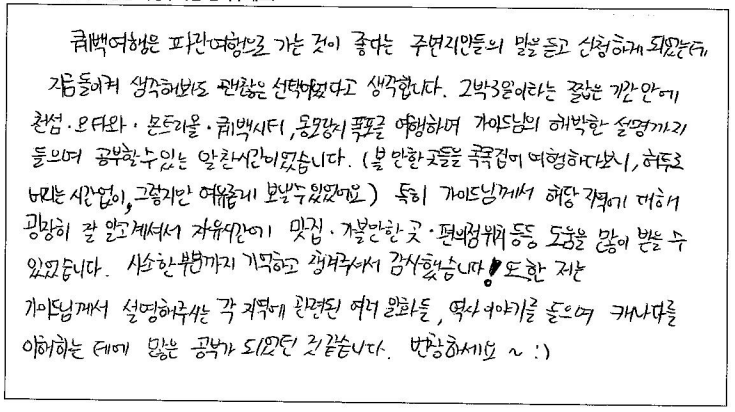 퀘백여행은 파란여행으로 가는 것이 좋다는 주변지인들의 말을 듣고 신청하게 되었는데
지금 돌이켜 생각해봐도 괜찮은 선택이었다고 생각합니다. 2박3일이라는 짧은 기간 안에
천섬·오타와·몬트리올·퀘백시티, 몽모랑시 폭포를 여행하며 가이드님의 해박한 설명까지
들으며 공부할 수 있는 알찬시간이었습니다. (볼 만한 곳들을 콕콕집어 여행하다보니, 허투로
버리는 시간없이, 그렇지만 여유롭게 보낼 수 있었어요) 특히 가이드님께서 해당 지역에 대해
굉장히 잘 알고계셔서 자유시간에 맛집·가볼만한 곳·편의점위치 등등 도움을 많이 받을 수
있었습니다. 사소한 부분까지 기억하고 챙겨주셔서 감사했습니다! 또한 저는
가이드님께서 설명해주시는 각 지역에 관련된 여러 일화들, 역사이야기를 들으며 캐나다를
이해하는 데에 많은 공부가 되었던 것 같습니다. 번창하세요 ~ :)